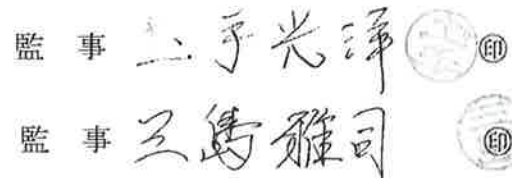 監 事 二手光洋 ㊞
監 事 三島雅司 ㊞